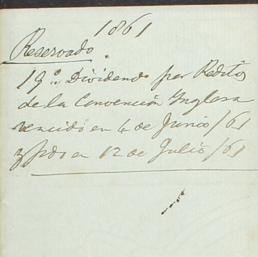 1861
Reservado.
19º Dividendo por Reditos
de la Convención Inglesa
vencido en 4 de Junio/61
y pdo en 12 de Julio/61